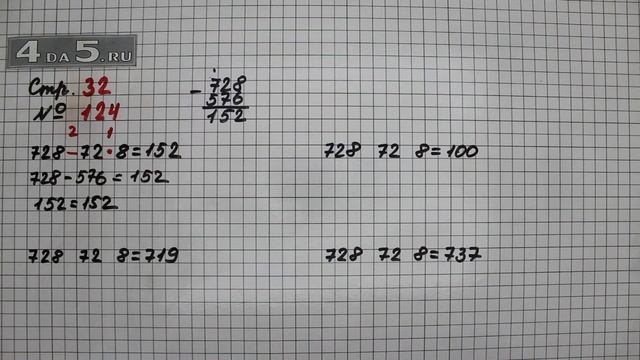 4DA5.RU
Стр. 32
№ 124
- 728
576
152
2 1
728-72·8=152
728-576=152
152=152
728 72 8=100
728 72 8=719
728 72 8=737